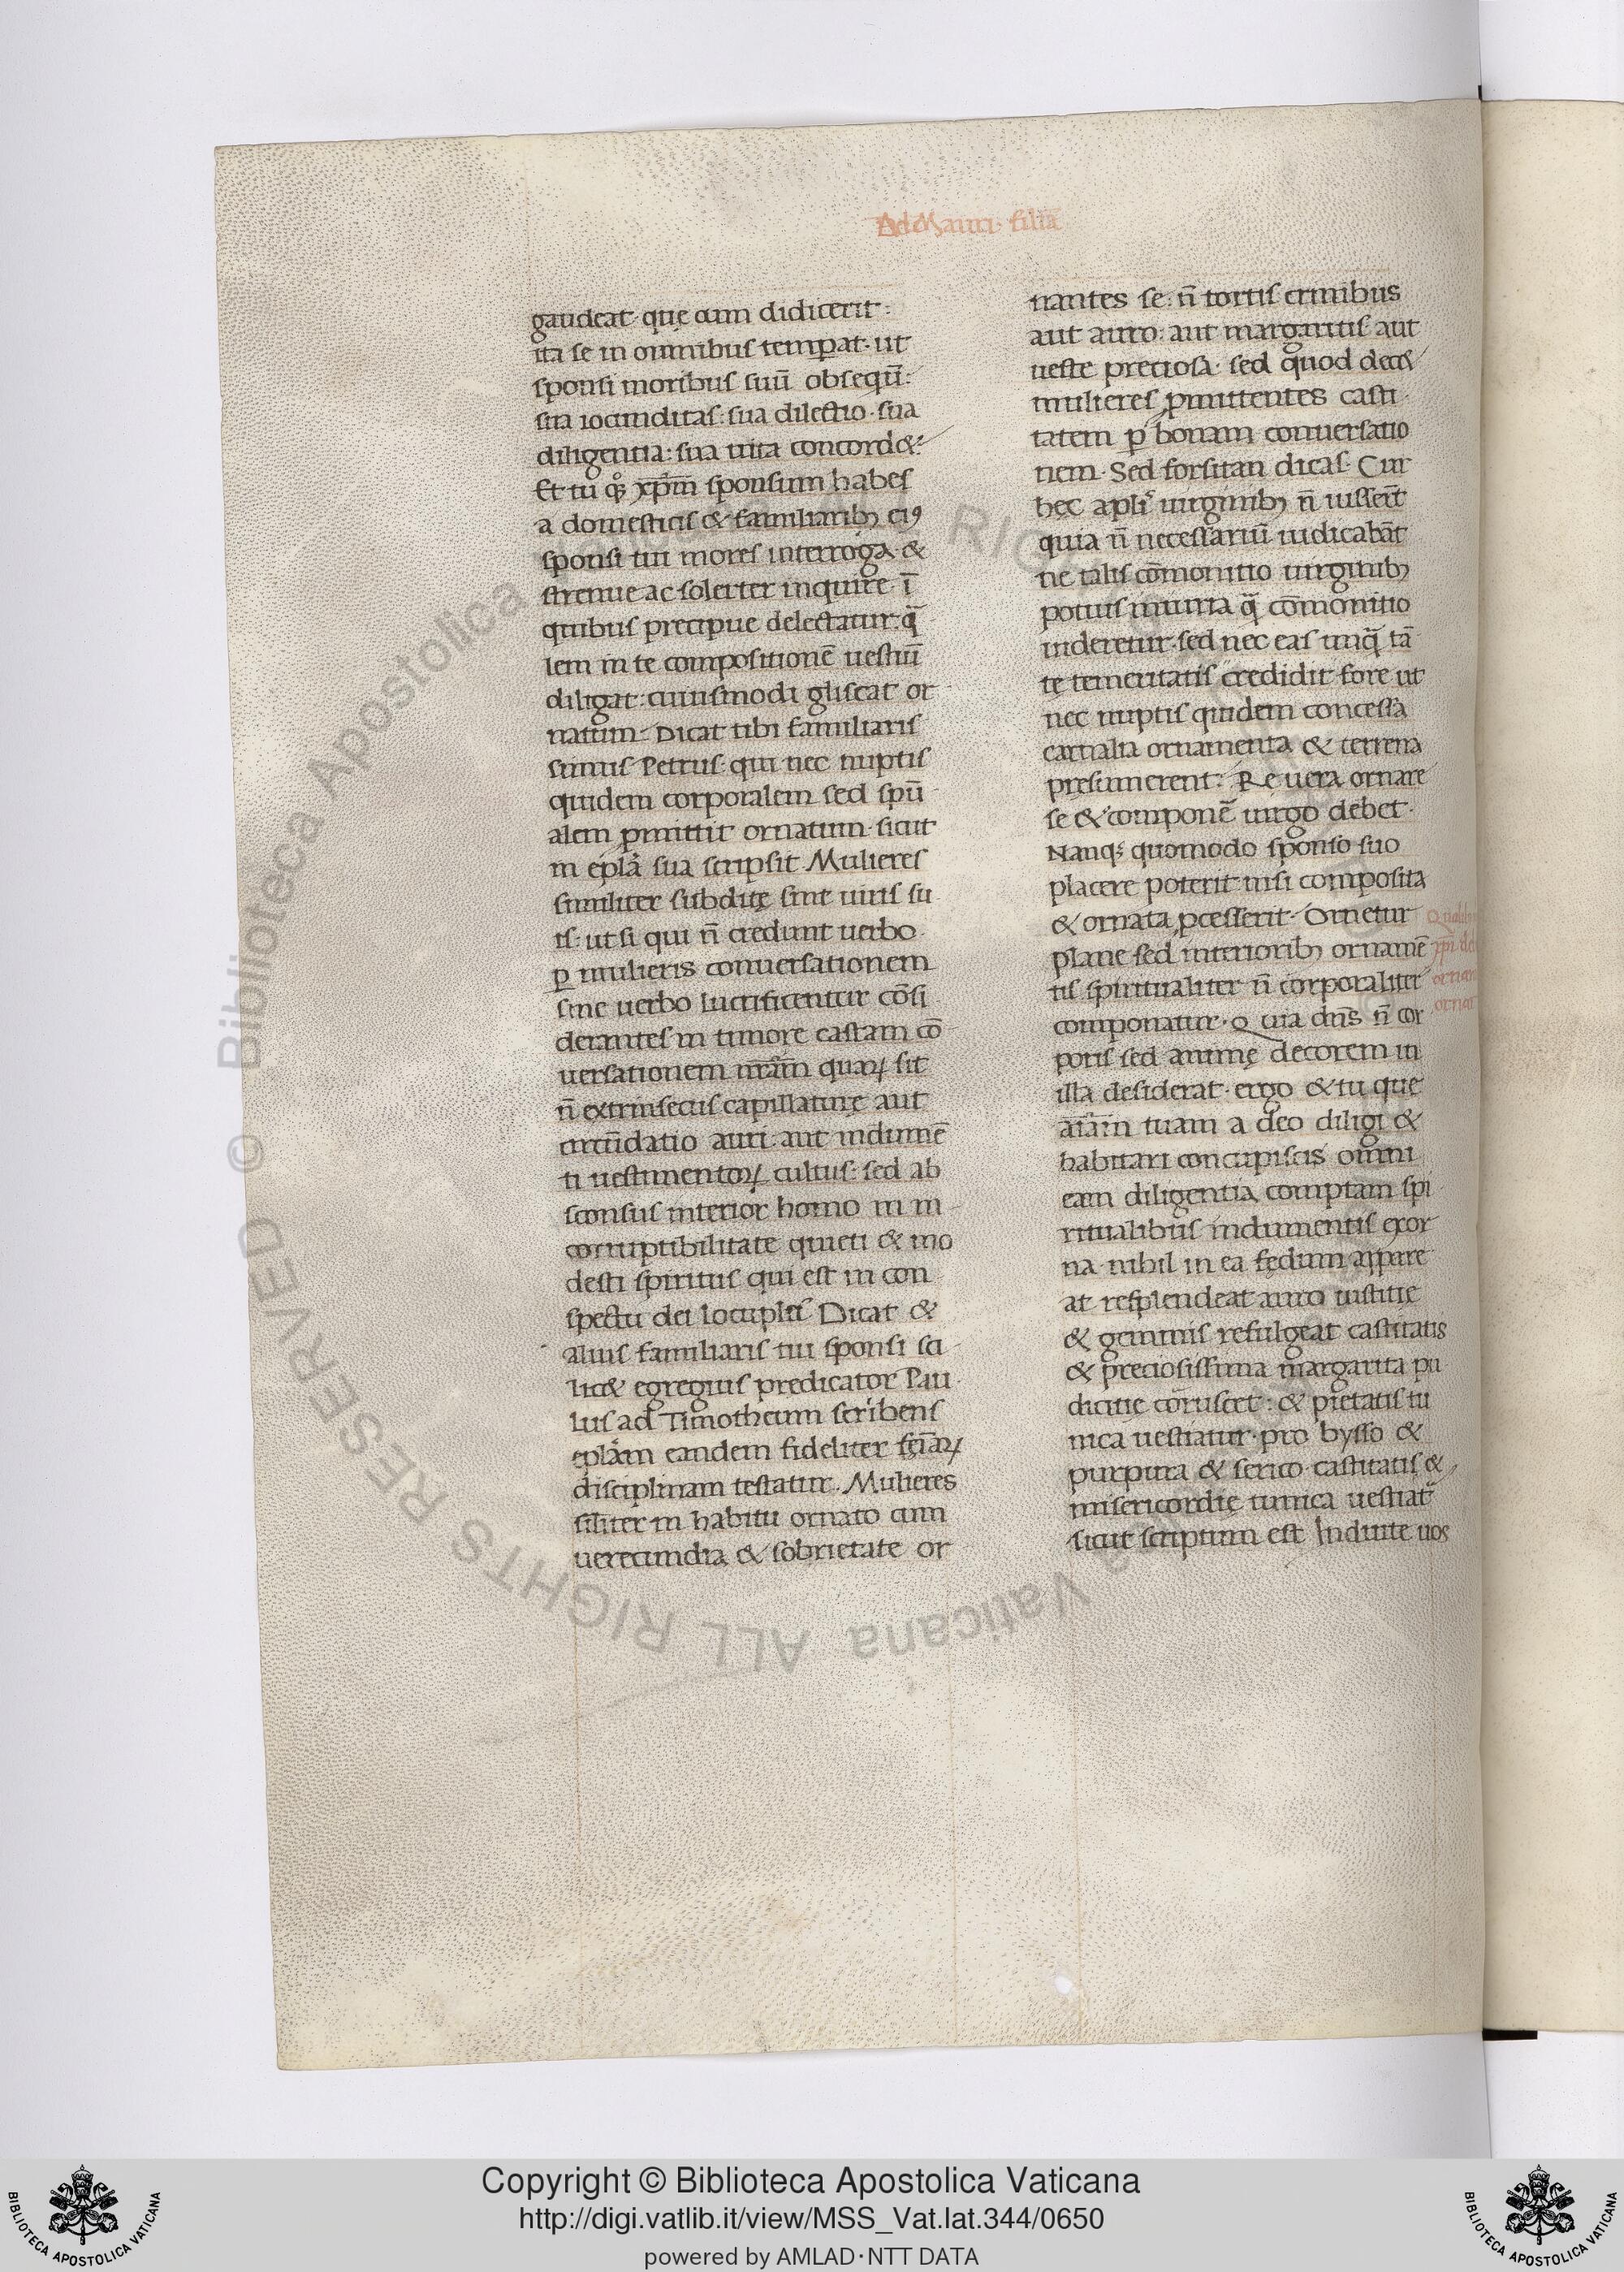 Ad Mauri · filiā
gaudeat · quę cum didicerit :
ita se in omnibus temꝑat · ut
sponsi moribus suū obsequiū :
sua iocunditas : sua dilectio · sua
diligentia : sua uita concord& :
Et tu qͦꝫ xp̄m sponsum habes
a domesticis & familiaribꝫ eiꝰ
sponsi tui mores interroga · &
strenue ac solerter inquire · ī
quibus precipue delectatur : q̄
lem in te compositionē uestiū
diligat : cuiusmodi gliscat or
natum · Dicat tibi familiaris
simus Petrus · qui nec nuptis
quidem corporalem sed spū
alem ꝑmittit ornatum · sicut
in epl̄a sua scripsit · Mulieres
similiter subditę sint uiris su
is : ut si qui n̄ credunt uerbo
ꝑ mulieris conuersationem
sine uerbo lucrificentur cōsi
derantes in timore castam cō
uersationem nr̄am quaꝝ sit
n̄ extrinsecus capillaturę aut
circūdatio auri : aut indumē
ti uestimentoꝝ cultus : sed ab
sconsus interior homo in in
corruptibilitate quieti & mo
desti spiritus qui est in con
spectu dei locuples̄ Dicat &
alius familiaris tui sponsi sci
lic& egregius predicator Pau
lus ad Timotheum scribens
epl̄am eandem fideliter fęīaꝝ
disciplinam testatur · Mulieres
sil̄iter in habitu ornato cum
uerecundia & sobrietate or
nantes se : n̄ tortis crinibus
aut auro : aut margaritis · aut
ueste preciosa · sed quod dec&
mulieres ꝓmittentes casti
tatem ꝑ bonam conuersatio
nem · Sed forsitan dicas · Cur
hęc apl̄i uirginibꝫ n̄ iusser̄t
quia n̄ necessariū iudicabāt
ne talis cōmonitio uirginibꝫ
potius iniuria q̄ cōmonitio
uideretur · sed nec eas unq̄ tā
tę temeritatis credidit fore ut
nec nuptis quidem concessa
carnalia ornamenta & terrena
pręsumerent : Re uera ornare
se & componē uirgo debet ·
Nanqꝫ quomodo sponso suo
placere poterit nisi composita
& ornata ꝓcesserit · Ornetur
plane sed interioribꝫ ornamē
tis spiritualiter n̄ corporaliter
componatur · Quia dn̄s n̄ cor
poris sed animę decorem in
illa desiderat · ergo & tu quę
aīam tuam a deo diligi &
habitari concupiscis omni
eam diligentia comptam spi
ritualibus indumentis exor
na · nihil in ea fędum appare
at resplendeat auro iustitię
& gemmis refulgeat castitatis
& preciosissima margarita pu
dicitię coruscet : & pietatis tu
nica uestiatur · pro bysso &
purpura & serico · castitatis &
misericordię tunica uestiat᷑
sicut scriptum est Induite uos
Copyright © Biblioteca Apostolica Vaticana
http://digi.vatlib.it/view/MSS_Vat.lat.344/0650
powered by AMLAD·NTT DATA
BIBLIOTECA APOSTOLICA VATICANA
BIBLIOTECA APOSTOLICA VATICANA